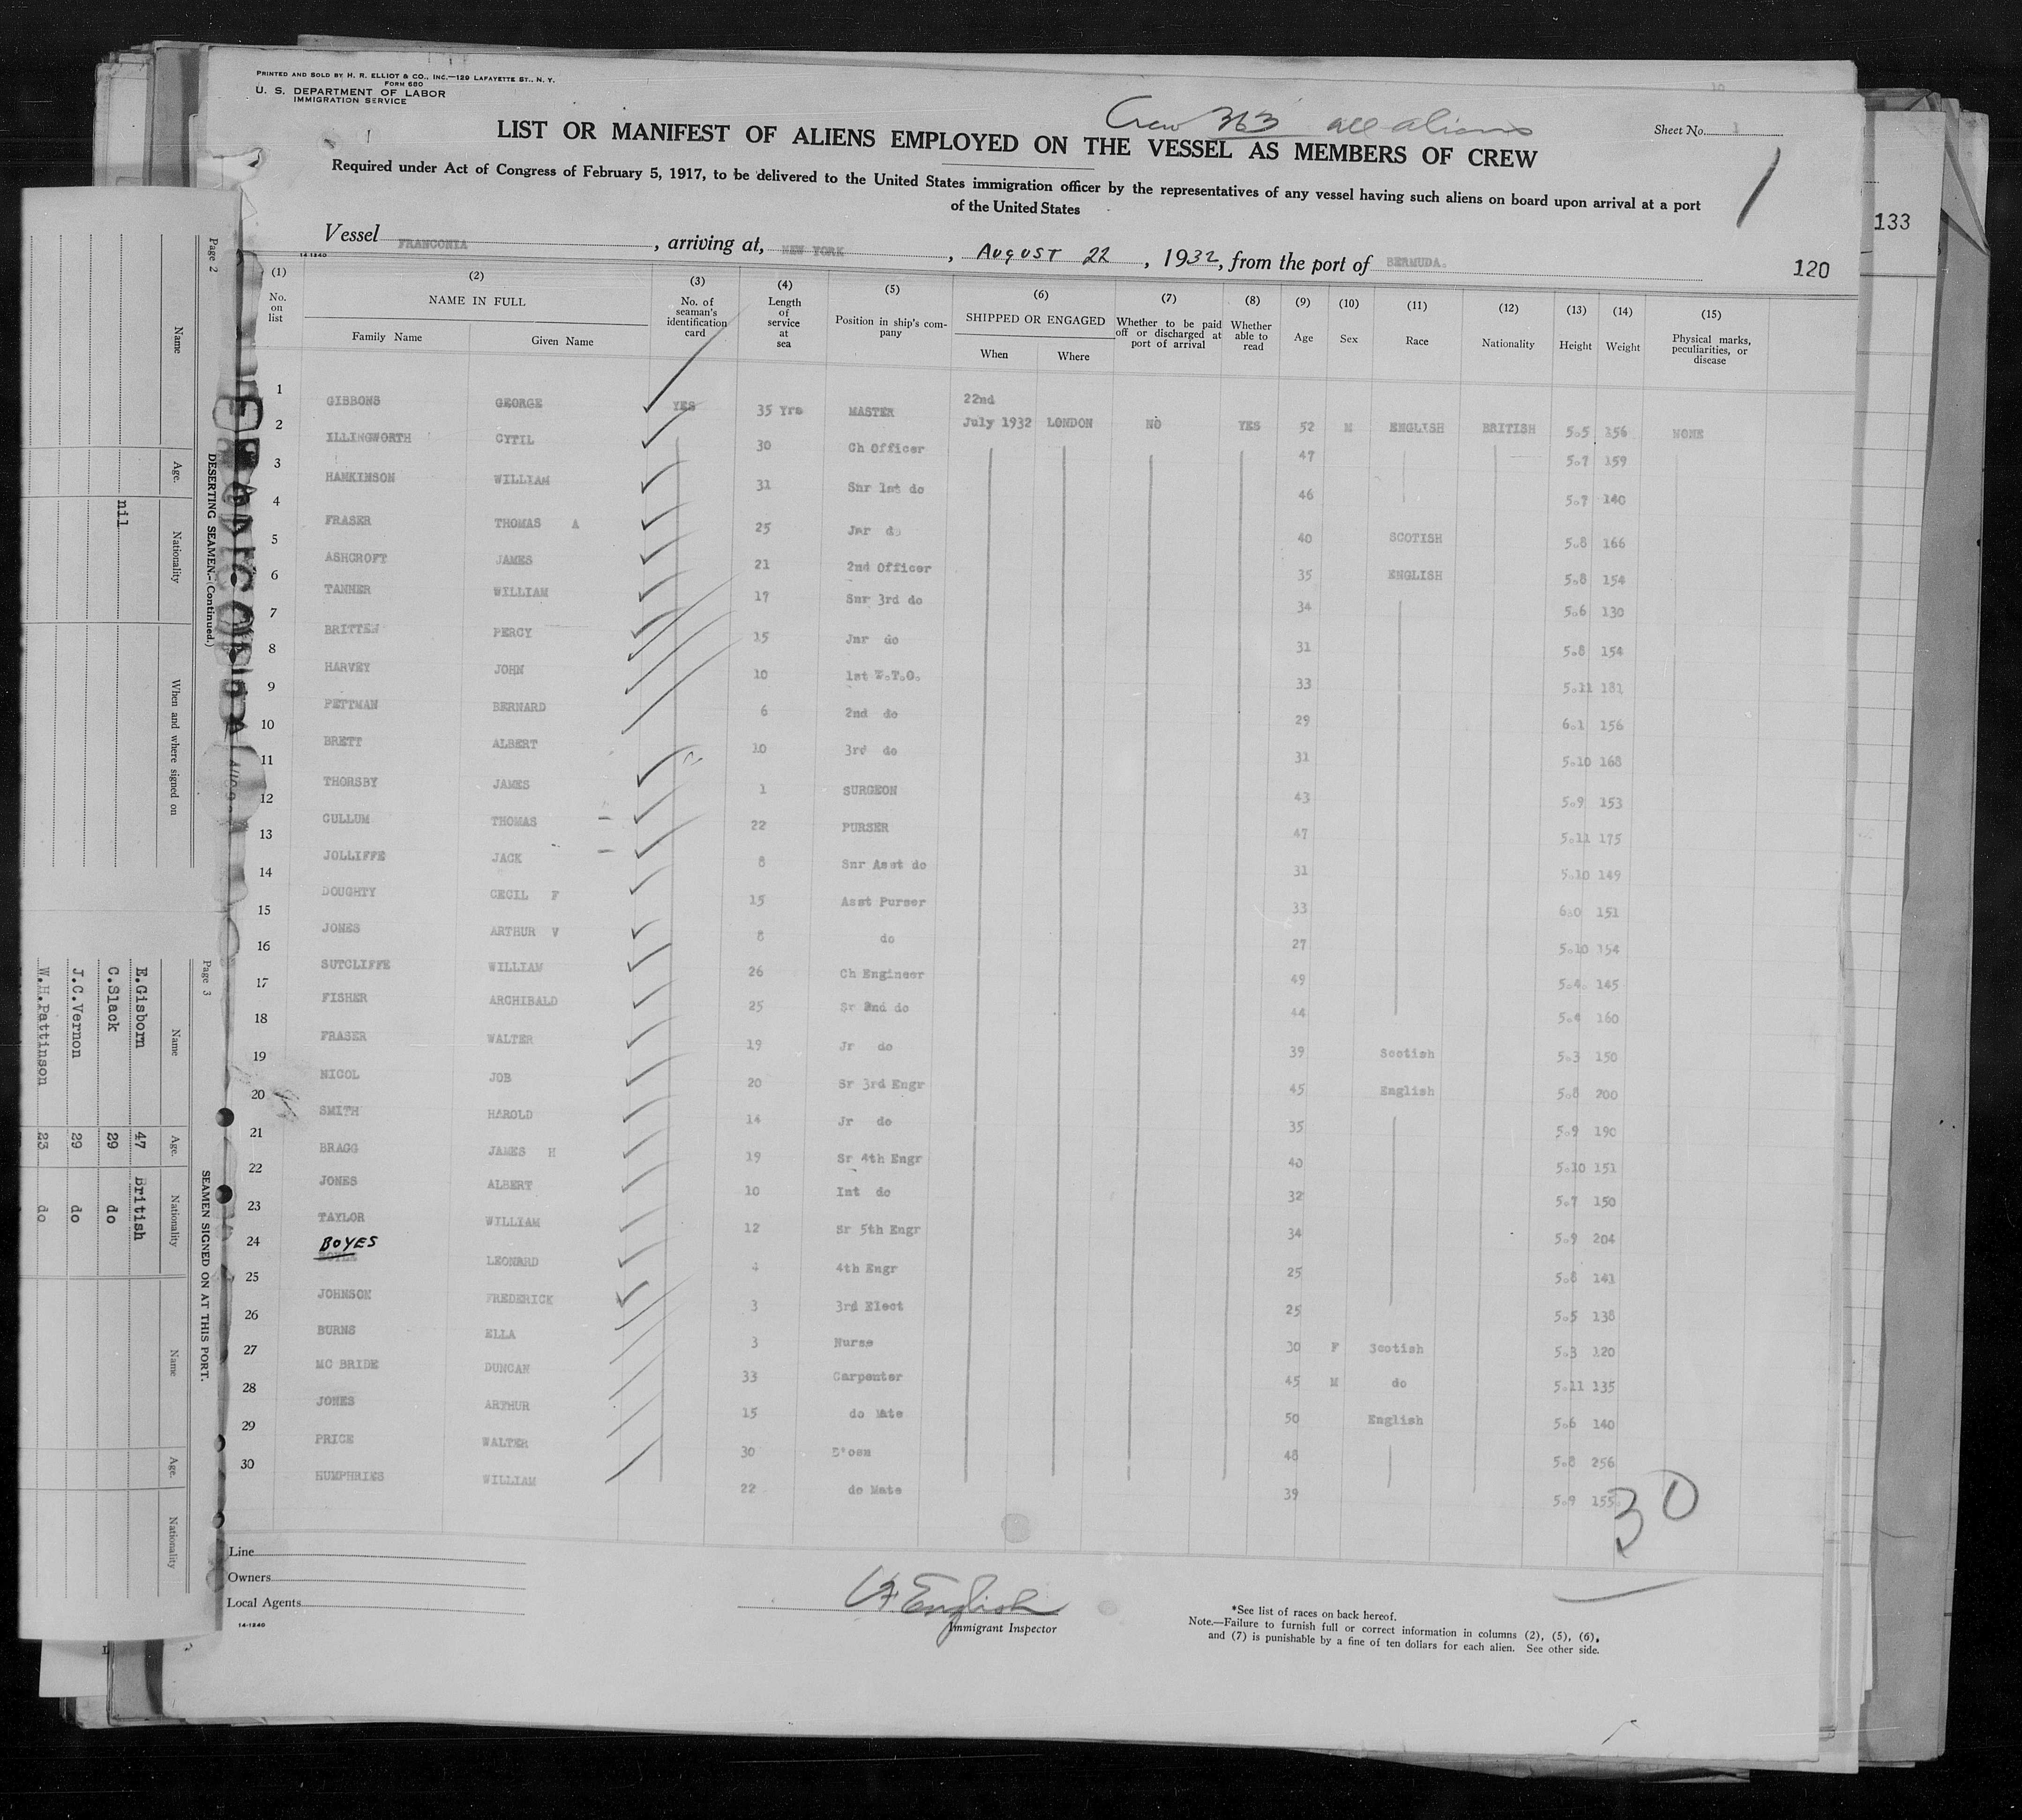 PRINTED AND SOLD BY H. R. ELLIOT & CO., INC.—120 LAFAYETTE ST., N. Y.
FORM 680
U. S. DEPARTMENT OF LABOR
IMMIGRATION SERVICE
Crew 363 all aliens
Sheet No. 1
LIST OR MANIFEST OF ALIENS EMPLOYED ON THE VESSEL AS MEMBERS OF CREW
1
Required under Act of Congress of February 5, 1917, to be delivered to the United States immigration officer by the representatives of any vessel having such aliens on board upon arrival at a port
of the United States
133
Vessel FRANCONIA, arriving at, NEW YORK, AUGUST 22, 1932, from the port of BERMUDA.
120
14-1240
(1) (2) (3) (4) (5) (6) (7) (8) (9) (10) (11) (12) (13) (14) (15)
No. on list NAME IN FULL Family Name Given Name No. of seaman's identification card Length of service at sea Position in ship's company SHIPPED OR ENGAGED When Where Whether to be paid off or discharged at port of arrival Whether able to read Age Sex Race Nationality Height Weight Physical marks, peculiarities, or disease
1 GIBBONS GEORGE YES 35 Yrs MASTER 22nd July 1932 LONDON NO YES 52 M ENGLISH BRITISH 5.5 156 NONE
2 ILLINGWORTH CYTIL 30 Ch Officer 47 5.7 159
3 HANKINSON WILLIAM 31 Snr 1st do 46 5.7 140
4 FRASER THOMAS A 25 Jnr do 40 SCOTISH 5.8 166
5 ASHCROFT JAMES 21 2nd Officer 35 ENGLISH 5.8 154
6 TANNER WILLIAM 17 Snr 3rd do 34 5.6 130
7 BRITTEN PERCY 15 Jnr do 31 5.8 154
8 HARVEY JOHN 10 1st W.T.O. 33 5.11 181
9 PETTMAN BERNARD 6 2nd do 29 6.1 156
10 BRETT ALBERT 10 3rd do 31 5.10 168
11 THORSBY JAMES 1 SURGEON 43 5.9 153
12 CULLUM THOMAS 22 PURSER 47 5.11 175
13 JOLLIFFE JACK 8 Snr Asst do 31 5.10 149
14 DOUGHTY CECIL F 15 Asst Purser 33 6.0 151
15 JONES ARTHUR V 8 do 27 5.10 154
16 SUTCLIFFE WILLIAM 26 Ch Engineer 49 5.4. 145
17 FISHER ARCHIBALD 25 Sr 2nd do 44 5.4 160
18 FRASER WALTER 19 Jr do 39 Scotish 5.3 150
19 NICOL JOB 20 Sr 3rd Engr 45 English 5.8 200
20 SMITH HAROLD 14 Jr do 35 5.9 190
21 BRAGG JAMES H 19 Sr 4th Engr 40 5.10 151
22 JONES ALBERT 10 Int do 32 5.7 150
23 TAYLOR WILLIAM 12 Sr 5th Engr 34 5.9 204
24 BOYES LEONARD 4 4th Engr 25 5.8 141
25 JOHNSON FREDERICK 3 3rd Elect 25 5.5 138
26 BURNS ELLA 3 Nurse 30 F Scotish 5.3 120
27 MC BRIDE DUNCAN 33 Carpenter 45 M do 5.11 135
28 JONES ARTHUR 15 do Mate 50 English 5.6 140
29 PRICE WALTER 30 B'osn 48 5.8 256
30 HUMPHRIES WILLIAM 22 do Mate 39 5.9 155
30
Line
Owners
Local Agents
14-1240
English
Immigrant Inspector
*See list of races on back hereof.
Note.—Failure to furnish full or correct information in columns (2), (5), (6),
and (7) is punishable by a fine of ten dollars for each alien. See other side.
Page 2
DESERTING SEAMEN.—(Continued.)
Name Age. Nationality When and where signed on
nil
Page 3
SEAMEN SIGNED ON AT THIS PORT.
Name Age. Nationality Name Age. Nationality
E.Gisborn 47 British
C.Slack 29 do
J.C.Vernon 29 do
W.H.Pattinson 23 do
FRANCONIA